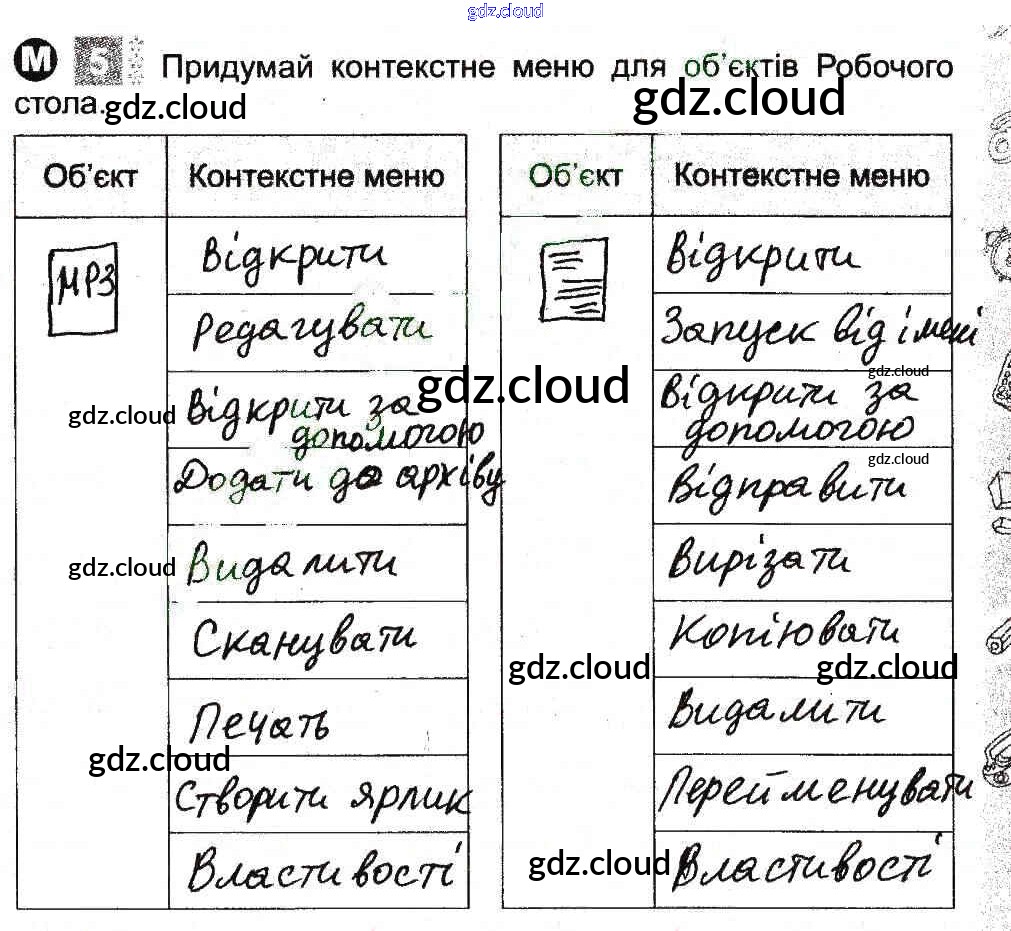 gdz.cloud
М 5 Придумай контекстне меню для об'єктів Робочого
стола. gdz.cloud gdz.cloud
Об'єкт Контекстне меню
МРЗ
Відкрити
Редагувати
Відкрити за
допомогою
Додати до архіву
Видалити
Сканувати
Печать
Створити ярлик
Властивості
Об'єкт Контекстне меню
Відкрити
Запуск від імені
Відкрити за
допомогою
Відправити
Вирізати
Копіювати
Видалити
Перейменувати
Властивості
gdz.cloud
gdz.cloud
gdz.cloud
gdz.cloud
gdz.cloud
gdz.cloud
gdz.cloud
gdz.cloud
gdz.cloud